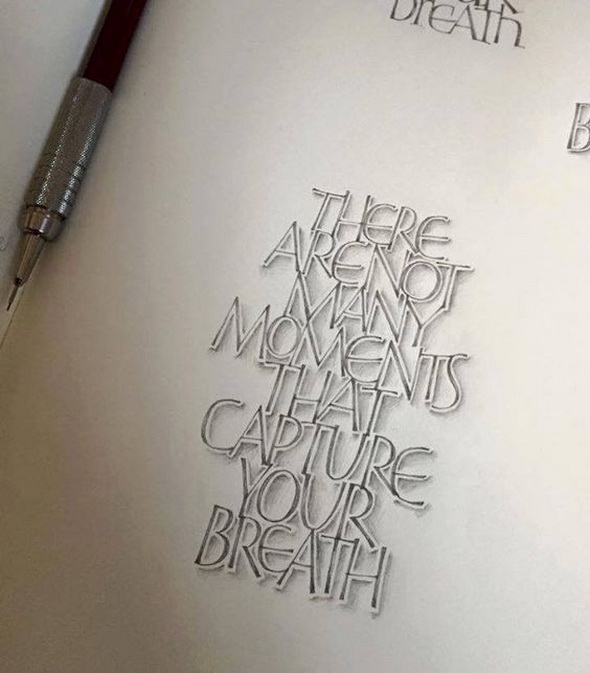 breath
B
THERE
ARE NOT
MANY
MOMENTS
THAT
CAPTURE
YOUR
BREATH